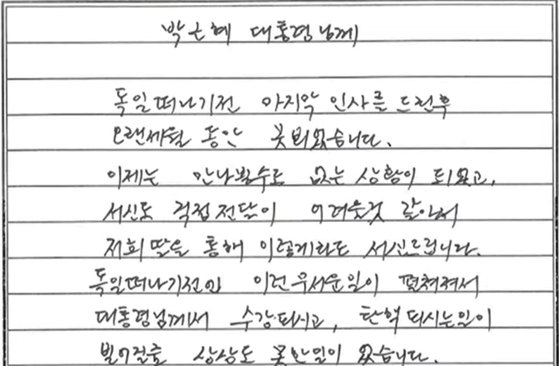 박근혜 대통령님께
독일떠나기전 마지막 인사를 드린후
오랜세월 동안 못뵈었습니다.
이제는 만나뵐수도 없는 상황이 되었고,
서신도 직접전달이 어려울것 같아서
저희 딸을 통해 이렇게라도 서신드립니다.
독일떠나기전의 이런무서운일이 펼쳐져서
대통령님께서 수감되시고, 탄핵되시는일이
벌어질줄 상상도 못한일이 었습니다.